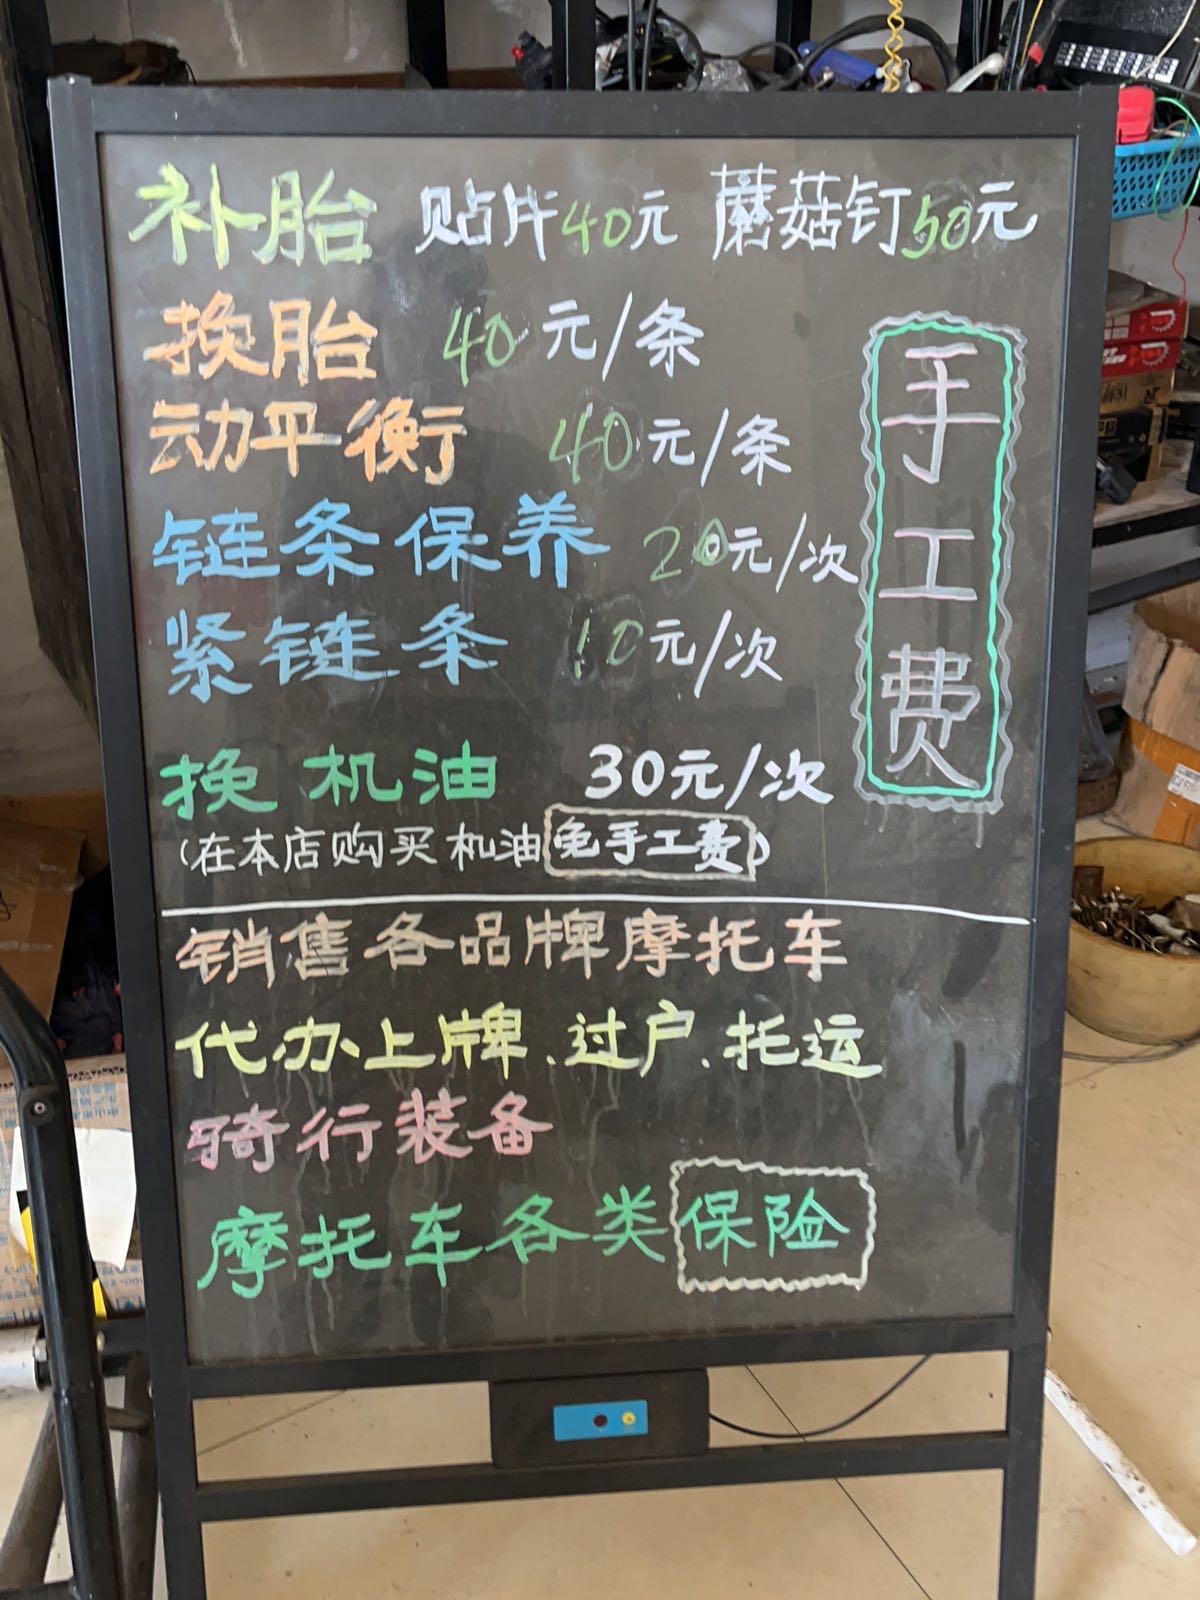 补胎 贴片40元 蘑菇钉50元
换胎 40元/条
动平衡 40元/条
链条保养 20元/次
紧链条 10元/次
手工费
换机油 30元/次
(在本店购买机油免手工费)
销售各品牌摩托车
代办上牌、过户、托运
骑行装备
摩托车各类保险